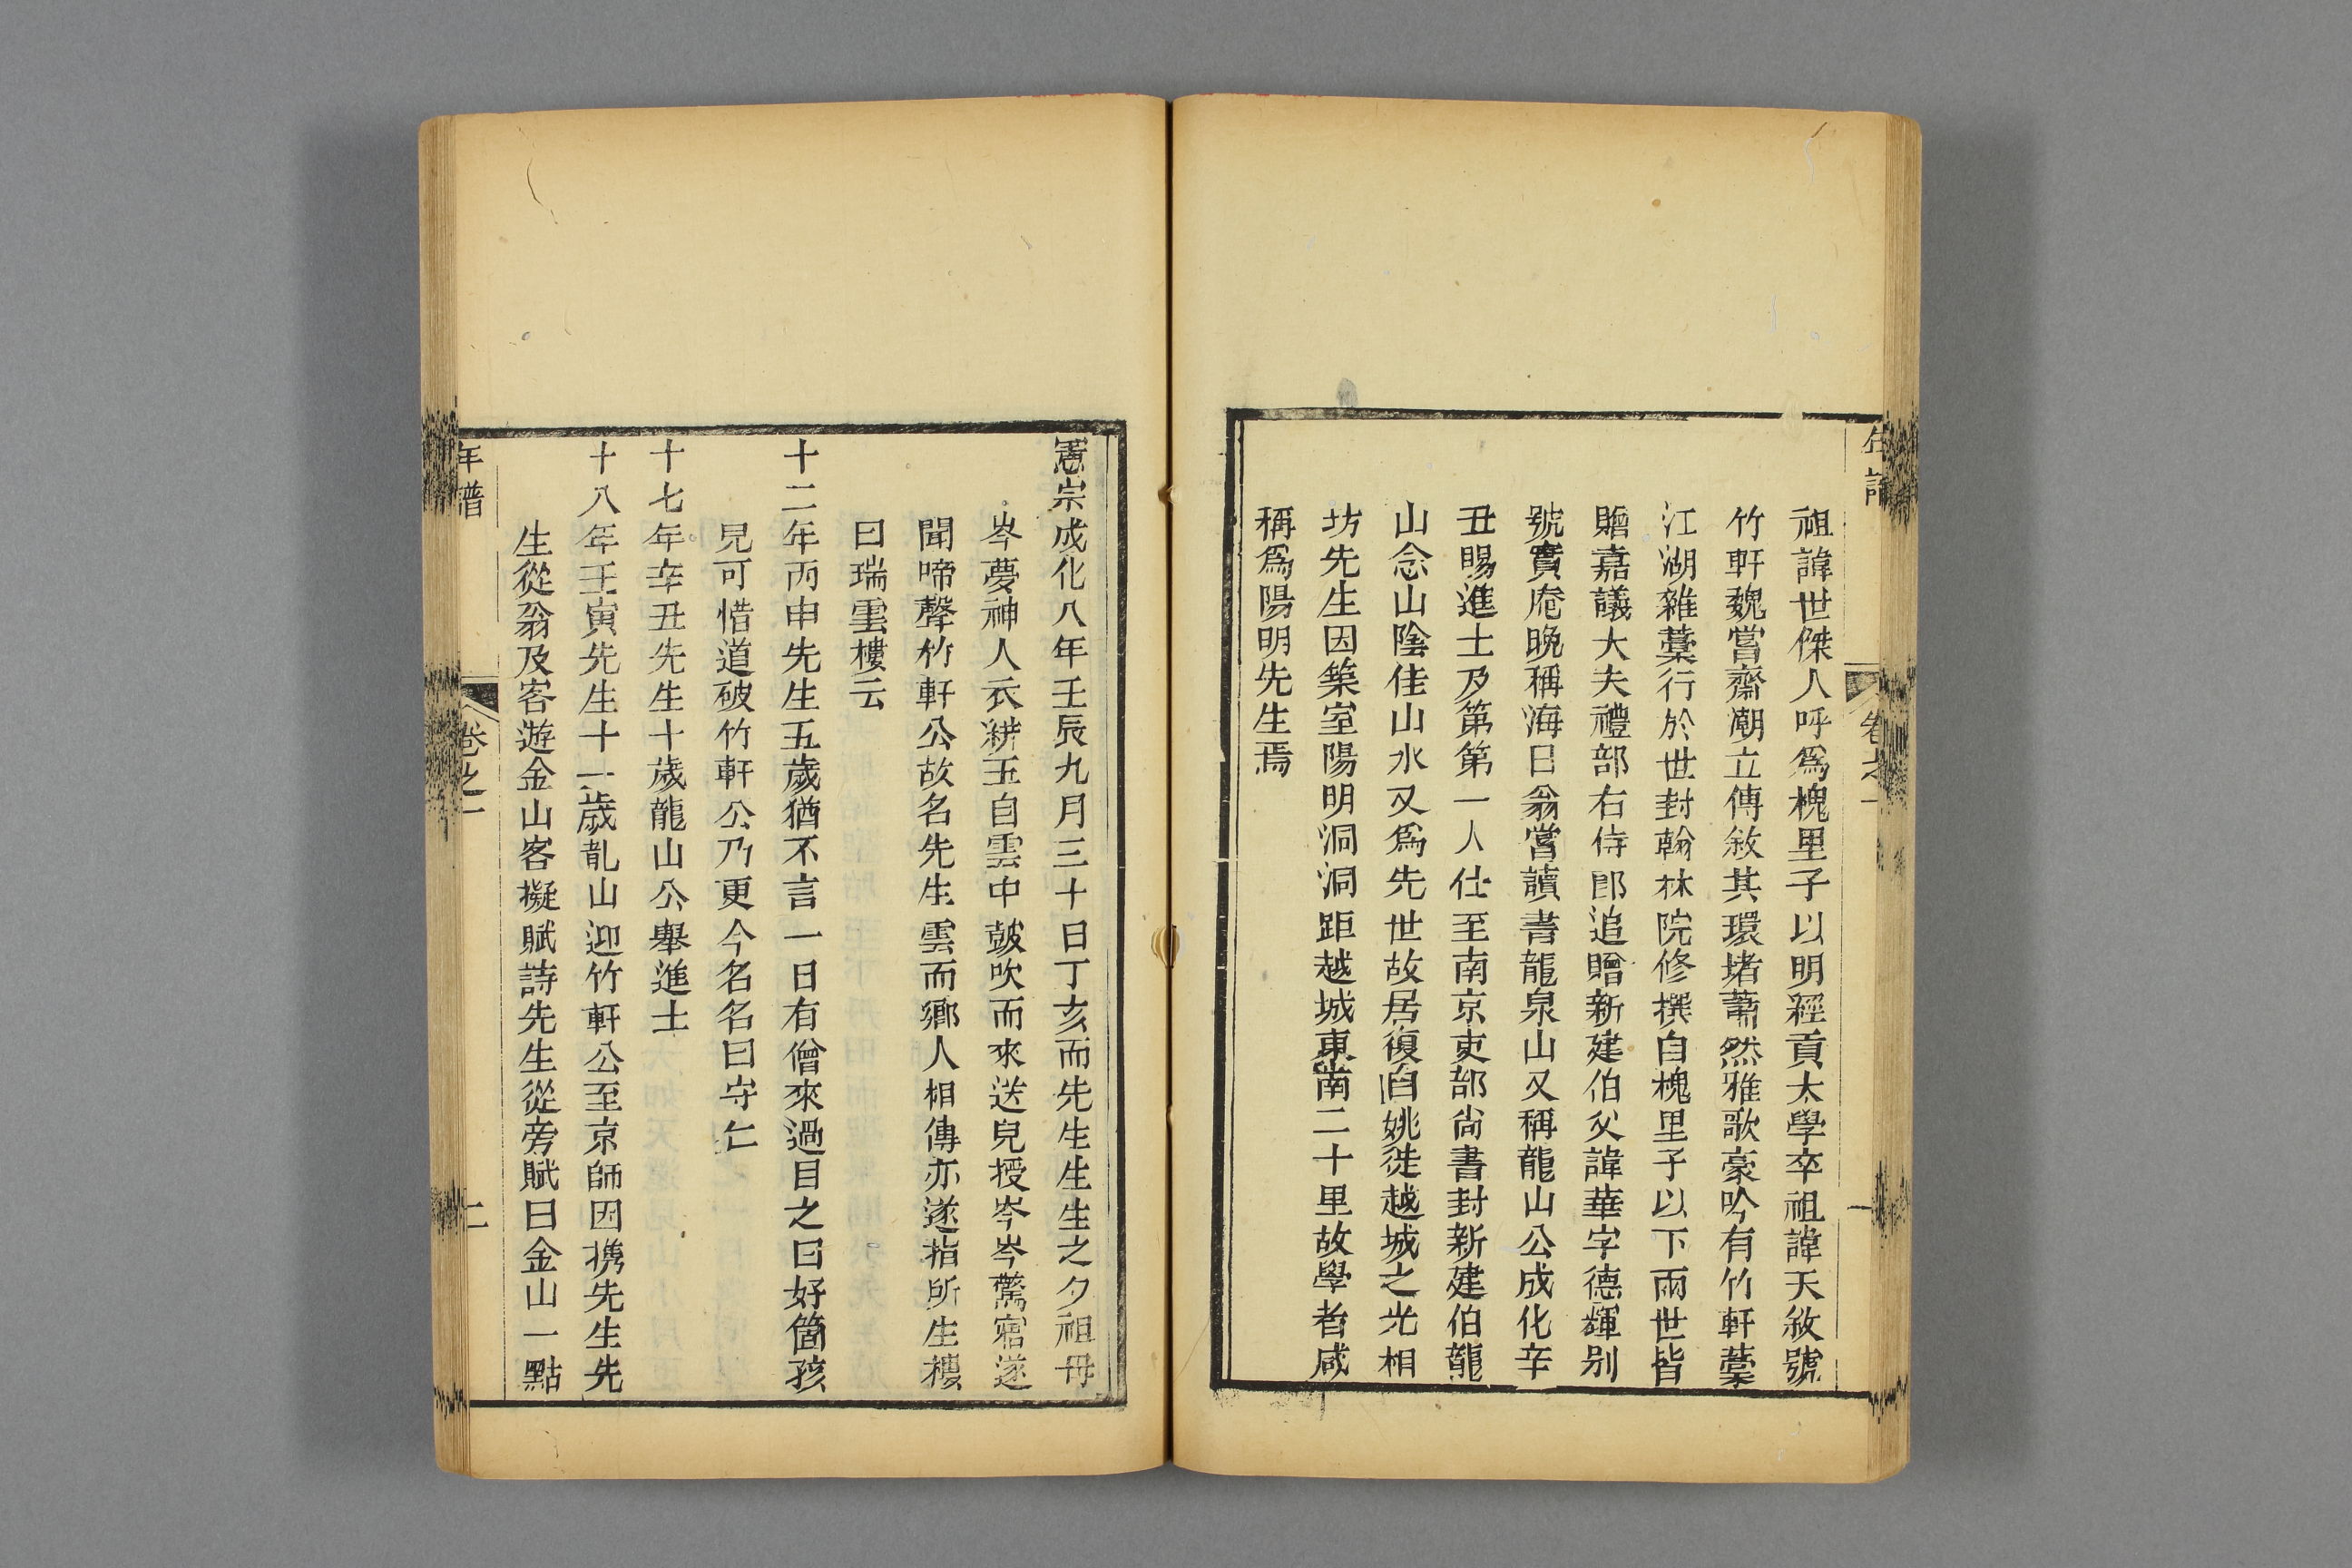 年譜 卷之一 一
祖諱世傑人呼爲槐里子以明經貢太學卒祖諱天敘號
竹軒魏嘗齋瀚立傳敘其環堵蕭然雅歌豪吟有竹軒藁
江湖雜藁行於世封翰林院修撰自槐里子以下兩世皆
贈嘉議大夫禮部右侍郎追贈新建伯父諱華字德輝别
號實庵晚稱海日翁嘗讀書龍泉山又稱龍山公成化辛
丑賜進士及第第一人仕至南京吏部尚書封新建伯龍
山念山陰佳山水又爲先世故居復自姚徙越城之光相
坊先生因築室陽明洞洞距越城東南二十里故學者咸
稱爲陽明先生焉
憲宗成化八年壬辰九月三十日丁亥而先生生生之夕祖母
岑夢神人衣緋玉自雲中皷吹而來送兒授岑岑驚寤遂
聞啼聲竹軒公故名先生雲而鄉人相傳亦遂指所生樓
曰瑞雲樓云
十二年丙申先生五歲猶不言一日有僧來過目之曰好箇孩
兒可惜道破竹軒公乃更今名名曰守仁
十七年辛丑先生十歲龍山公舉進士
十八年壬寅先生十一歲龍山迎竹軒公至京師因擕先生先
生從翁及客遊金山客擬賦詩先生從旁賦曰金山一點
年譜 卷之一 二